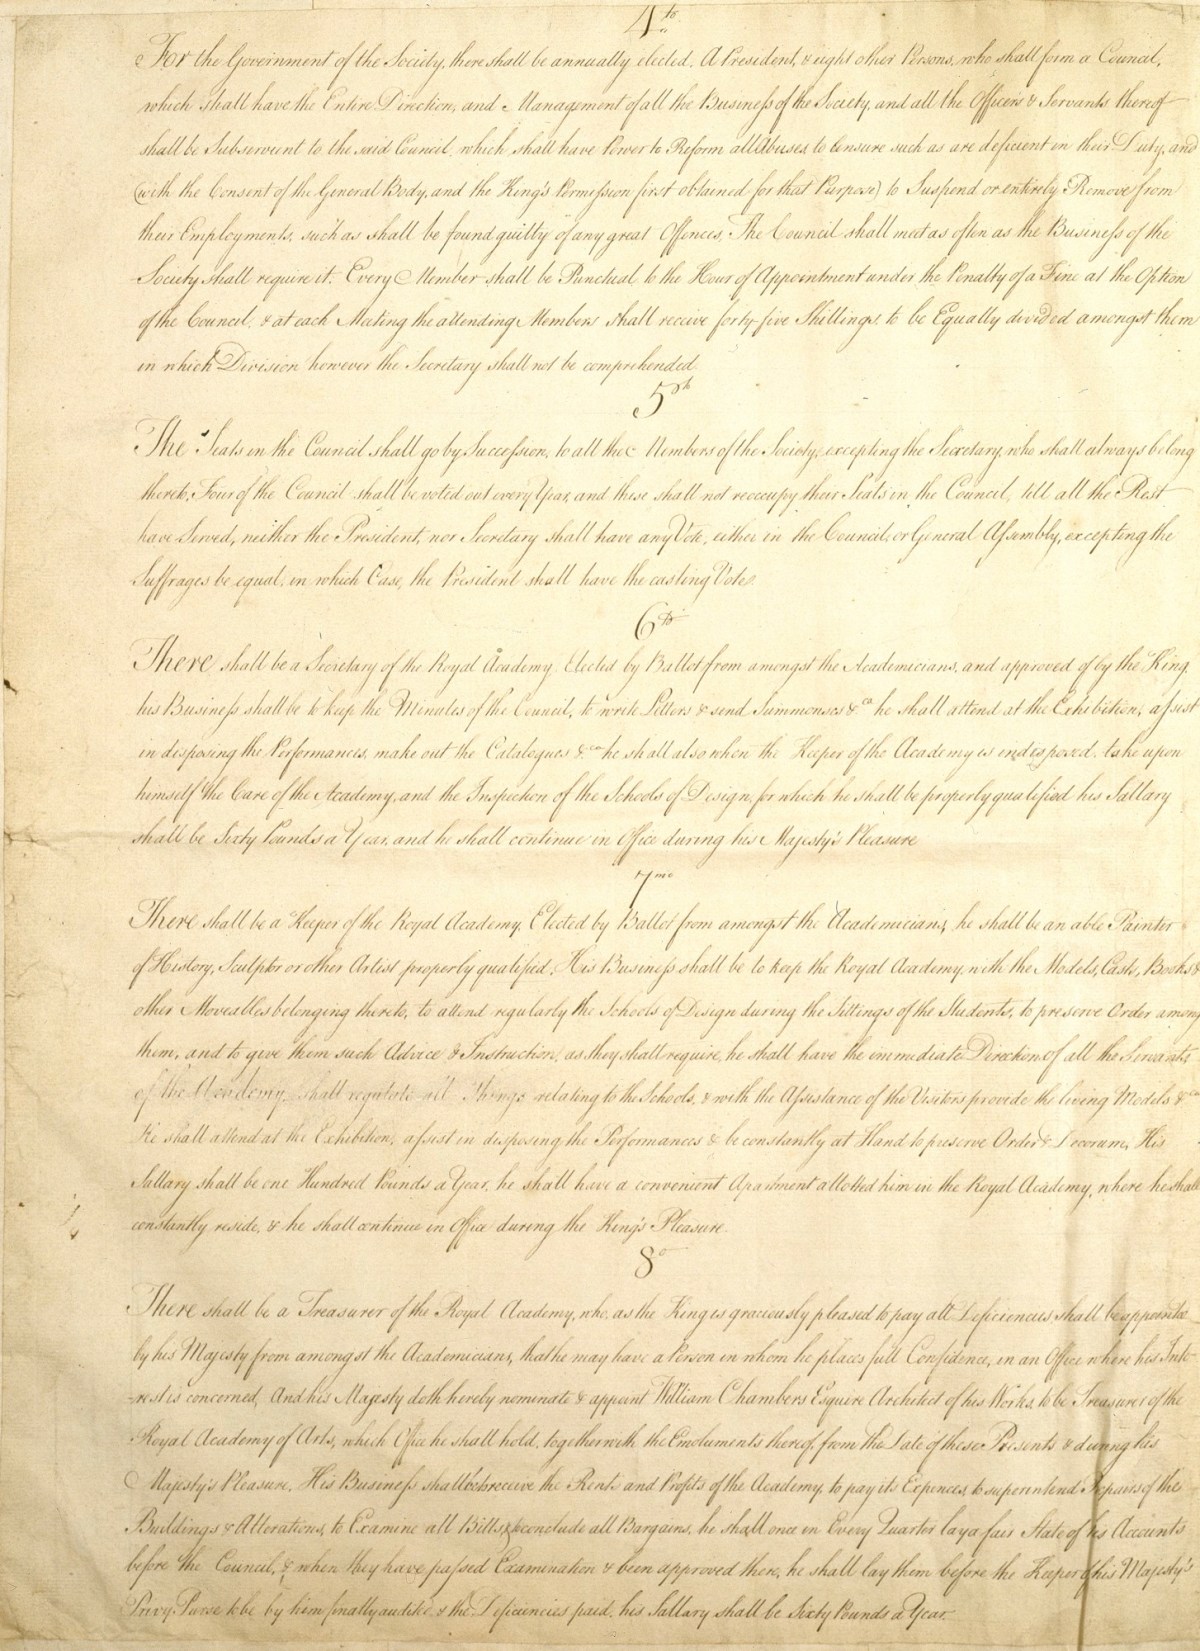 4to
For the Government of the Society, there shall be annually elected, A President, & eight other Persons, who shall form a Council,
which shall have the Entire Direction, and Management of all the Business of the Society, and all the Officers & Servants thereof
shall be Subservient to the said Council, which shall have Power to Reform all Abuses, to censure such as are deficient in their Duty, and
(with the Consent of the General Body, and the King's Permission first obtained for that Purpose) to Suspend or entirely Remove from
their Employments, such as shall be found guilty of any great Offences. The Council shall meet as often as the Business of the
Society shall require it. Every Member shall be Punctual to the Hour of Appointment under the Penalty of a Fine at the Option
of the Council, & at each Meeting the attending Members shall receive forty-five Shillings, to be Equally divided amongst them
in which Division however the Secretary shall not be comprehended
5th
The Seats in the Council shall go by Succession, to all the Members of the Society, excepting the Secretary, who shall always belong
thereto, Four of the Council shall be voted out every Year, and these shall not reoccupy their Seats in the Council, till all the Rest
have Served, neither the President, nor Secretary shall have any Vote, either in the Council, or General Assembly, excepting the
Suffrages be equal, in which Case, the President shall have the casting Vote.
6to
There shall be a Secretary of the Royal Academy, Elected by Ballot from amongst the Academicians, and approved of by the King,
his Business shall be to keep the Minutes of the Council, to write Letters & send Summonses &ca he shall attend at the Exhibition, assist
in disposing the Performances, make out the Catalogues &ca he shall also when the Keeper of the Academy is indisposed, take upon
himself the Care of the Academy, and the Inspection of the Schools of Design, for which he shall be properly qualified his Sallary
shall be Sixty Pounds a Year, and he shall continue in Office during his Majesty's Pleasure
7mo
There shall be a Keeper of the Royal Academy, Elected by Ballot from amongst the Academicians, he shall be an able Painter
of History, Sculptor or other Artist properly qualified, His Business shall be to keep the Royal Academy, with the Models, Casts, Books &
other Moveables belonging thereto, to attend regularly the Schools of Design during the Sittings of the Students, to preserve Order among
them, and to give them such Advice & Instruction, as they shall require, he shall have the immediate Direction of all the Servants
of the Academy, shall regulate all Things relating to the Schools, & with the Assistance of the Visitors provide the living Models &ca
He shall attend at the Exhibition, assist in disposing the Performances & be constantly at Hand to preserve Order & Decorum, His
Sallary shall be one Hundred Pounds a Year, he shall have a convenient Apartment allotted him in the Royal Academy, where he shall
constantly reside, & he shall continue in Office during the King's Pleasure.
8o
There shall be a Treasurer of the Royal Academy, who, as the King is graciously pleased to pay all Deficiencies, shall be appointed
by his Majesty from amongst the Academicians, that he may have a Person in whom he places full Confidence, in an Office where his Inte-
-rest is concerned, And his Majesty doth hereby nominate & appoint William Chambers Esquire Architect of his Works, to be Treasurer of the
Royal Academy of Arts, which Office he shall hold, together with the Emoluments thereof, from the Date of these Presents & during his
Majesty's Pleasure. His Business shall be to receive the Rents and Profits of the Academy, to pay its Expences, to superintend Repairs of the
Buildings & Alterations, to Examine all Bills, & to conclude all Bargains, he shall once in Every Quarter lay a fair State of his Accounts
before the Council, & when they have passed Examination & been approved there, he shall lay them before the Keeper of his Majesty's
Privy Purse to be by him finally audited, & the Deficiencies paid, his Sallary shall be Sixty Pounds a Year.